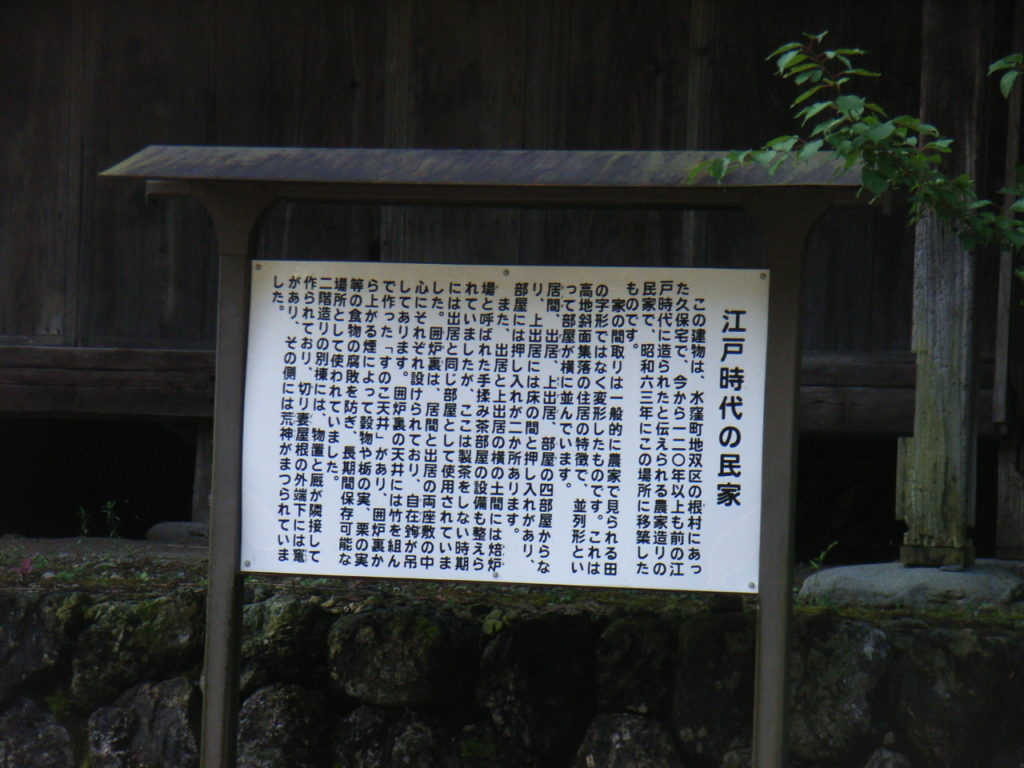 江戸時代の民家
この建物は、水窪町地双区の根村にあっ
た久保宅で、今から一二〇年以上も前の江
戸時代に造られたと伝えられる農家造りの
民家で、昭和六三年にこの場所に移築した
ものです。
家の間取りは一般的に農家で見られる田
の字形ではなく変形したものです。これは
高地斜面集落の住居の特徴で、並列形とい
って部屋が横に並んでいます。
居間、出居、上出居、部屋の四部屋からな
り、上出居には床の間と押し入れがあり、
部屋には押し入れが二か所あります。
また、出居と上出居の横の土間には焙炉
場と呼ばれた手揉み茶部屋の設備も整えら
れていましたが、ここは製茶をしない時期
には出居と同じ部屋として使用されていま
した。囲炉裏は、居間と出居の両座敷の中
心にそれぞれ設けられており、自在鉤が吊
してあります。囲炉裏の天井には竹を組ん
で作った「すのこ天井」があり、囲炉裏か
ら上がる煙によって穀物や栃の実、栗の実
等の食物の腐敗を防ぎ、長期間保存可能な
場所として使われていました。
二階造りの別棟には、物置と厩が隣接して
作られており、切り妻屋根の外端下には竃
があり、その側には荒神がまつられていま
した。